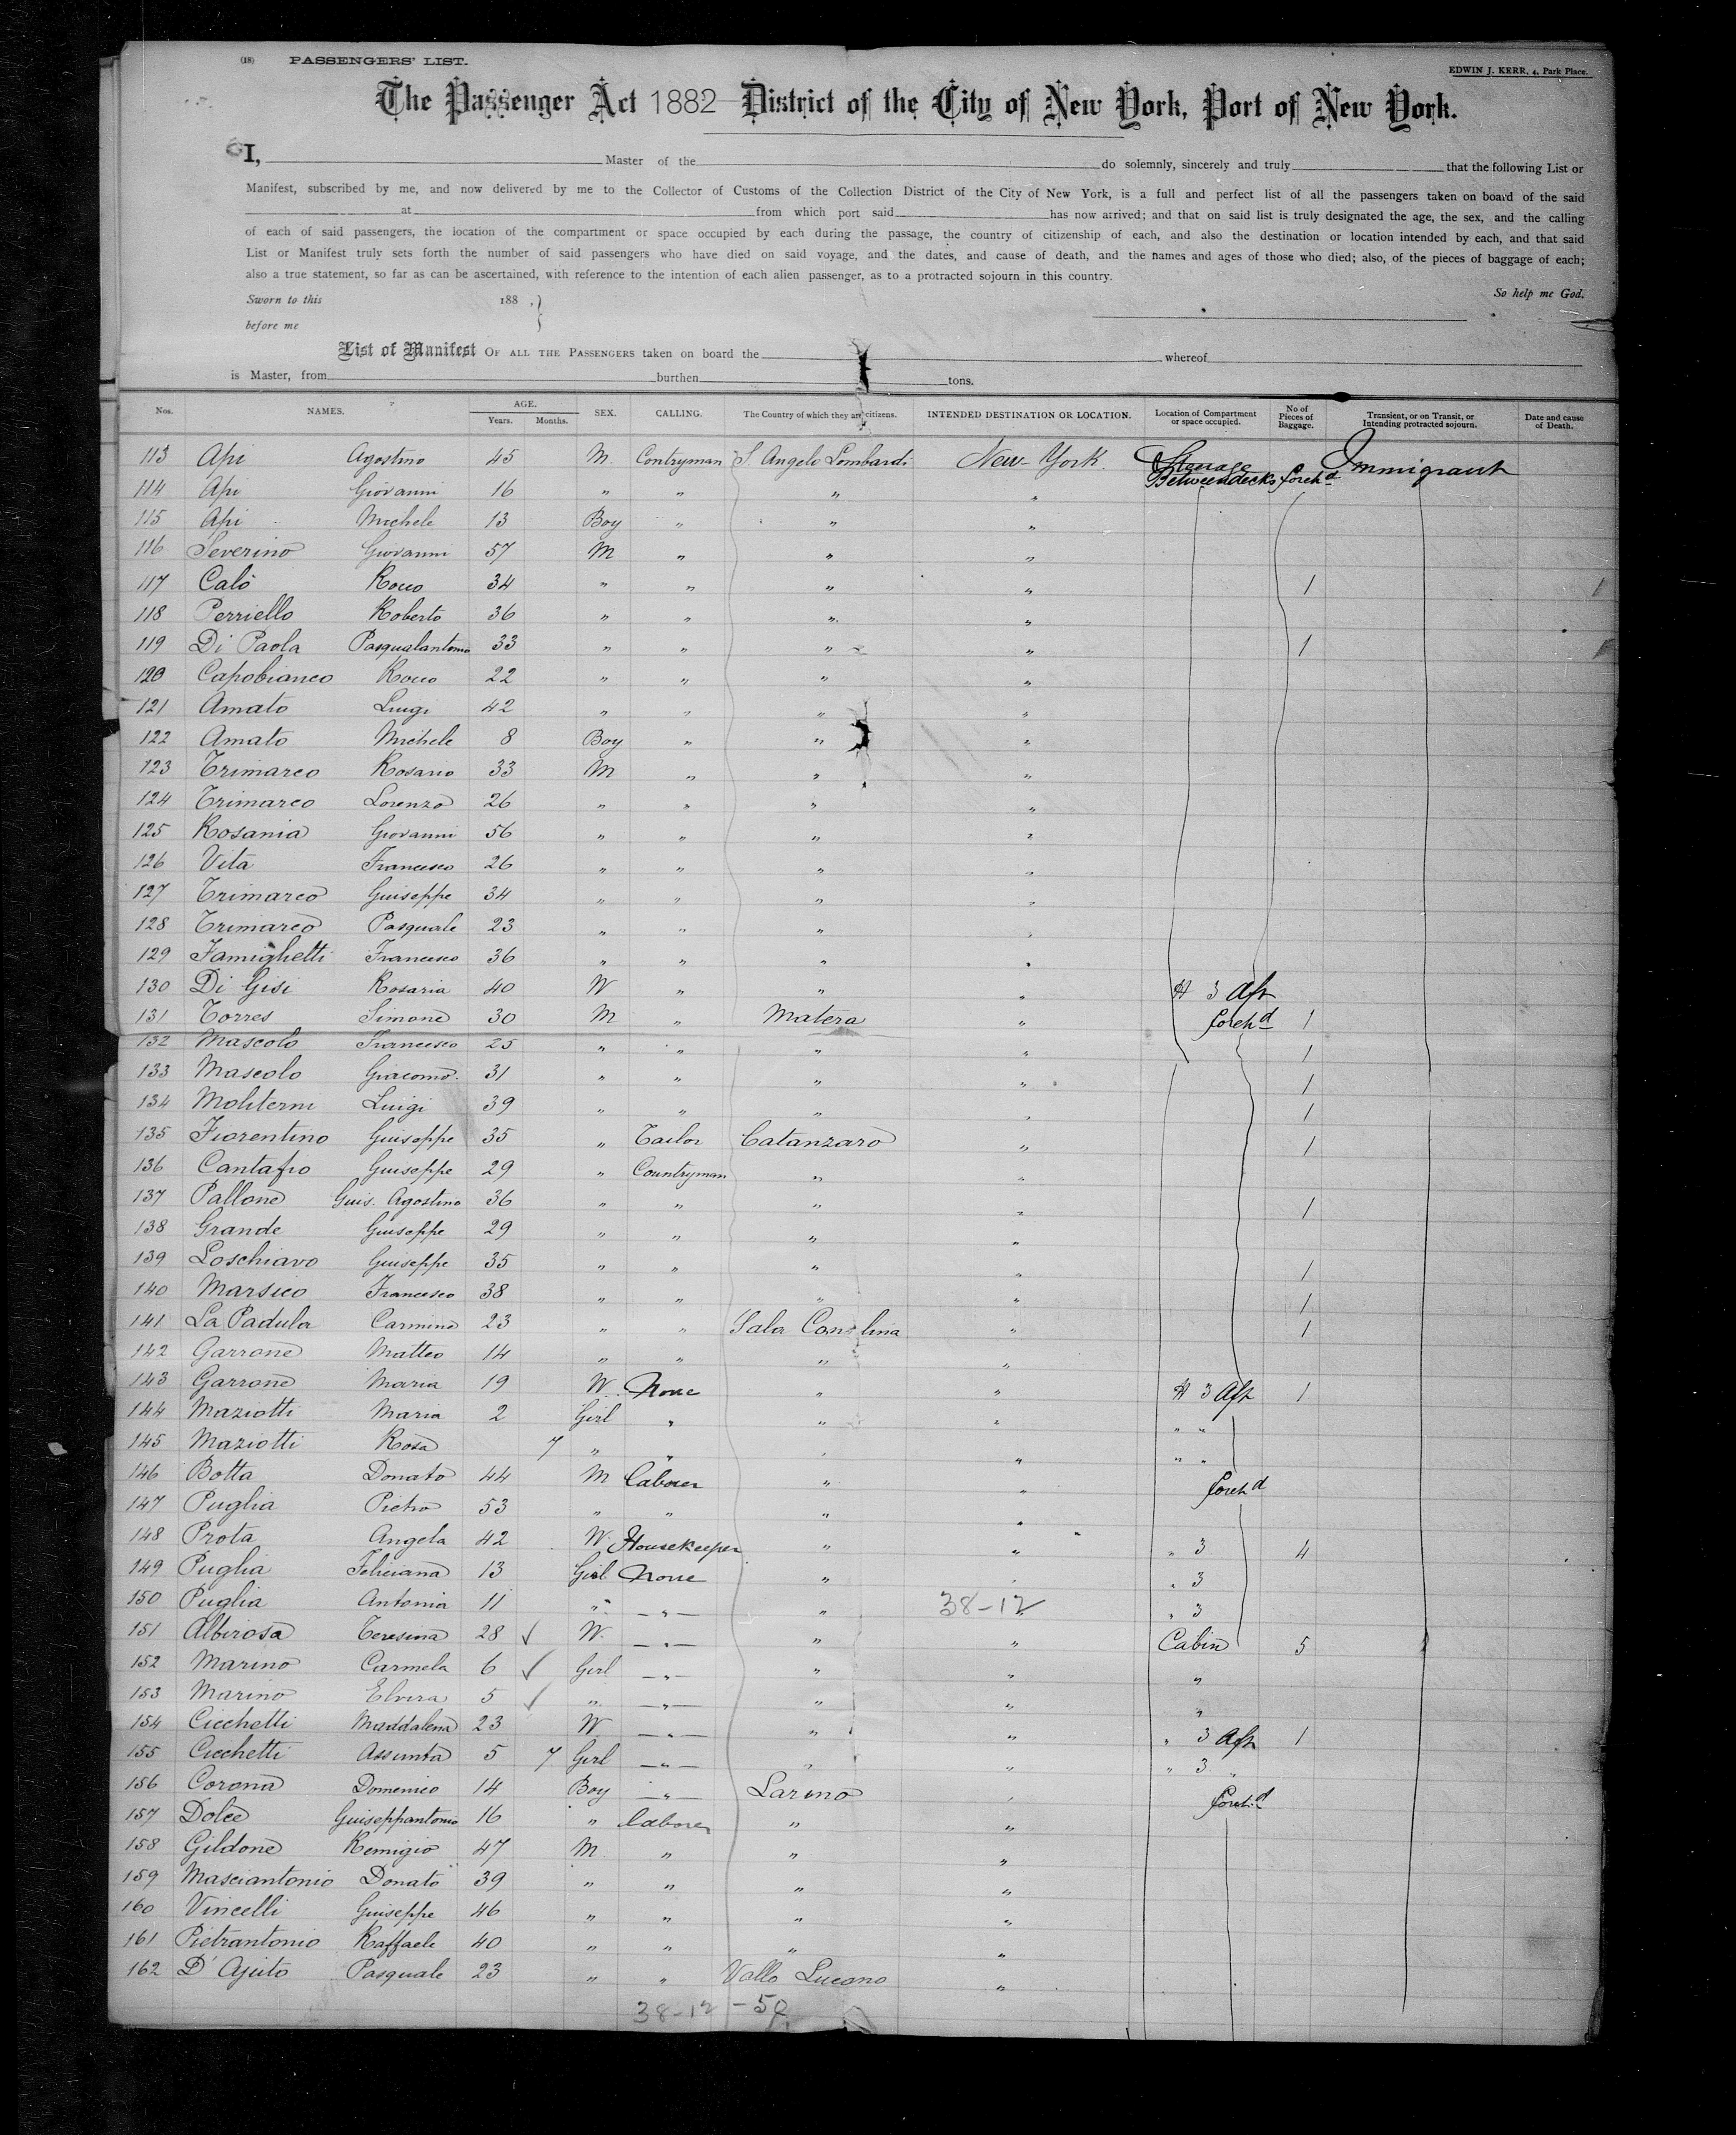 (18) PASSENGERS' LIST.
EDWIN J. KERR, 4, Park Place.
The Passenger Act 1882 District of the City of New York, Port of New York.
I, Master of the do solemnly, sincerely and truly that the following List or
Manifest, subscribed by me, and now delivered by me to the Collector of Customs of the Collection District of the City of New York, is a full and perfect list of all the passengers taken on board of the said
at from which port said has now arrived; and that on said list is truly designated the age, the sex, and the calling
of each of said passengers, the location of the compartment or space occupied by each during the passage, the country of citizenship of each, and also the destination or location intended by each, and that said
List or Manifest truly sets forth the number of said passengers who have died on said voyage, and the dates, and cause of death, and the names and ages of those who died; also, of the pieces of baggage of each;
also a true statement, so far as can be ascertained, with reference to the intention of each alien passenger, as to a protracted sojourn in this country.
Sworn to this 188 , } So help me God.
before me
List of Manifest OF ALL THE PASSENGERS taken on board the whereof
is Master, from burthen tons.
Nos. NAMES. AGE. Years. Months. SEX. CALLING. The Country of which they are citizens. INTENDED DESTINATION OR LOCATION. Location of Compartment or space occupied. No of Pieces of Baggage. Transient, or on Transit, or Intending protracted sojourn. Date and cause of Death.
113 Api Agostino 45 M. Contryman S. Angelo Lombardi New-York. Steerage Betweendecks foreh d Immigrant
114 Api Giovanni 16 " " " "
115 Api Michele 13 Boy " " "
116 Severino Giovanni 57 M " " "
117 Calò Rocco 34 " " " " 1
118 Perriello Roberto 36 " " " "
119 Di Paola Pasqualantonio 33 " " " " 1
120 Capobianco Rocco 22 " " " "
121 Amato Luigi 42 " " " "
122 Amato Michele 8 Boy " " "
123 Trimarco Rosario 33 M " " "
124 Trimarco Lorenzo 26 " " " "
125 Rosania Giovanni 56 " " " "
126 Vita Francesco 26 " " " "
127 Trimarco Guiseppe 34 " " " "
128 Trimarco Pasquale 23 " " " "
129 Famighetti Francesco 36 " " " "
130 Di Gisi Rosaria 40 W " " " H 3 Aft
131 Torres Simone 30 M " Matera " foreh d 1
132 Mascolo Francesco 25 " " " " 1
133 Mascolo Giacomo 31 " " " " 1
134 Moliterni Luigi 39 " " " " 1
135 Fiorentino Guiseppe 35 " Tailor Catanzaro " 1
136 Cantafio Guiseppe 29 " Countryman " "
137 Pallone Guis. Agostino 36 " " " " 1
138 Grande Guiseppe 29 " " " "
139 Loschiavo Guiseppe 35 " " " " 1
140 Marsico Francesco 38 " " " " 1
141 La Padula Carmine 23 " " Sala Consilina " 1
142 Garrone Matteo 14 " " " "
143 Garrone Maria 19 W. None " " H 3 Aft 1
144 Maziotti Maria 2 Girl " " " " "
145 Maziotti Rosa 7 " " " " " "
146 Botta Donato 44 M Laborer " " foreh d
147 Puglia Pietro 53 " " " "
148 Prota Angela 42 W. Housekeeper " " " 3 4
149 Puglia Feliciana 13 Girl None " " " 3
150 Puglia Antonia 11 " " " 38-12 " " 3
151 Albirosa Teresina 28 ✓ W. " " " Cabin 5
152 Marino Carmela 6 ✓ Girl " " " "
153 Marino Elvira 5 ✓ " " " " "
154 Cicchetti Maddalena 23 W " " " " 3 Aft 1
155 Cicchetti Assunta 5 7 Girl " " " " 3 "
156 Corona Domenico 14 Boy " Larino " foreh d
157 Dolce Guiseppantonio 16 " Laborer " "
158 Gildone Remigio 47 M " " "
159 Masciantonio Donato 39 " " " "
160 Vincelli Guiseppe 46 " " " "
161 Pietrantonio Raffaele 40 " " " "
162 D'Ajuto Pasquale 23 " " Vallo Lucano "
38-12-50